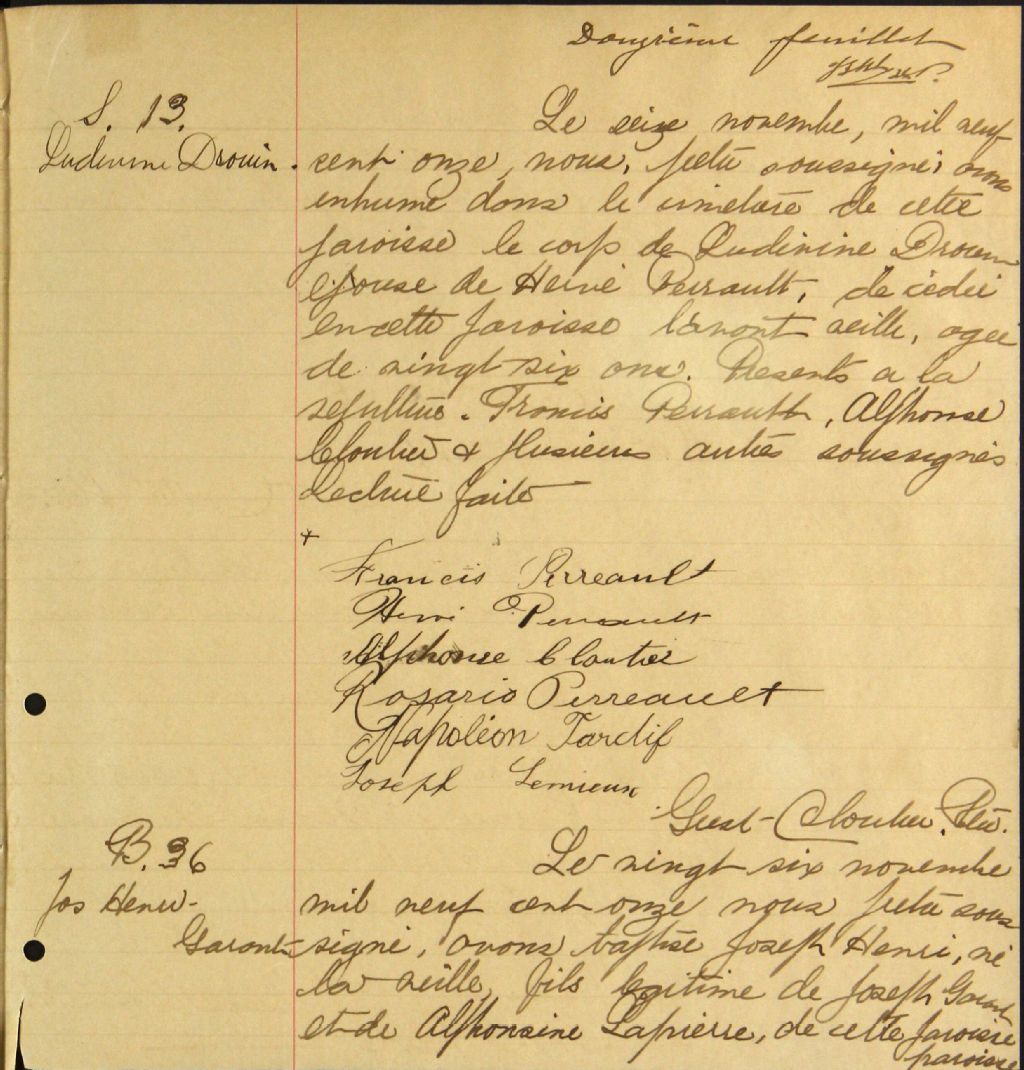 Douzième feuillet
S. 13.
Ludivine Drouin.
Le seize novembre, mil neuf
cent onze, nous, prêtre soussigné, avons
inhumé dans le cimetière de cette
paroisse le corps de Ludivine Drouin
épouse de Hervé Perrault, décédée
en cette paroisse l'avant veille, agée
de vingt six ans. Présents a la
sépulture. Francis Perrault, Alphonse
Cloutier & plusieurs autres soussignés
Lecture faite
+
Francis Perreault
Perreault
Alphonse Cloutier
Rosario Perreault
Napoléon Tardif
Joseph Lemieux
Cloutier, Ptre.
B. 36
Jos Henri
Garant
Le vingt six novembre
mil neuf cent onze nous prêtre sous
signé, avons baptisé Joseph Henri, né
la veille, fils légitime de Joseph Garant
et de Alphonsine Lapierre, de cette paroisse
paroisse